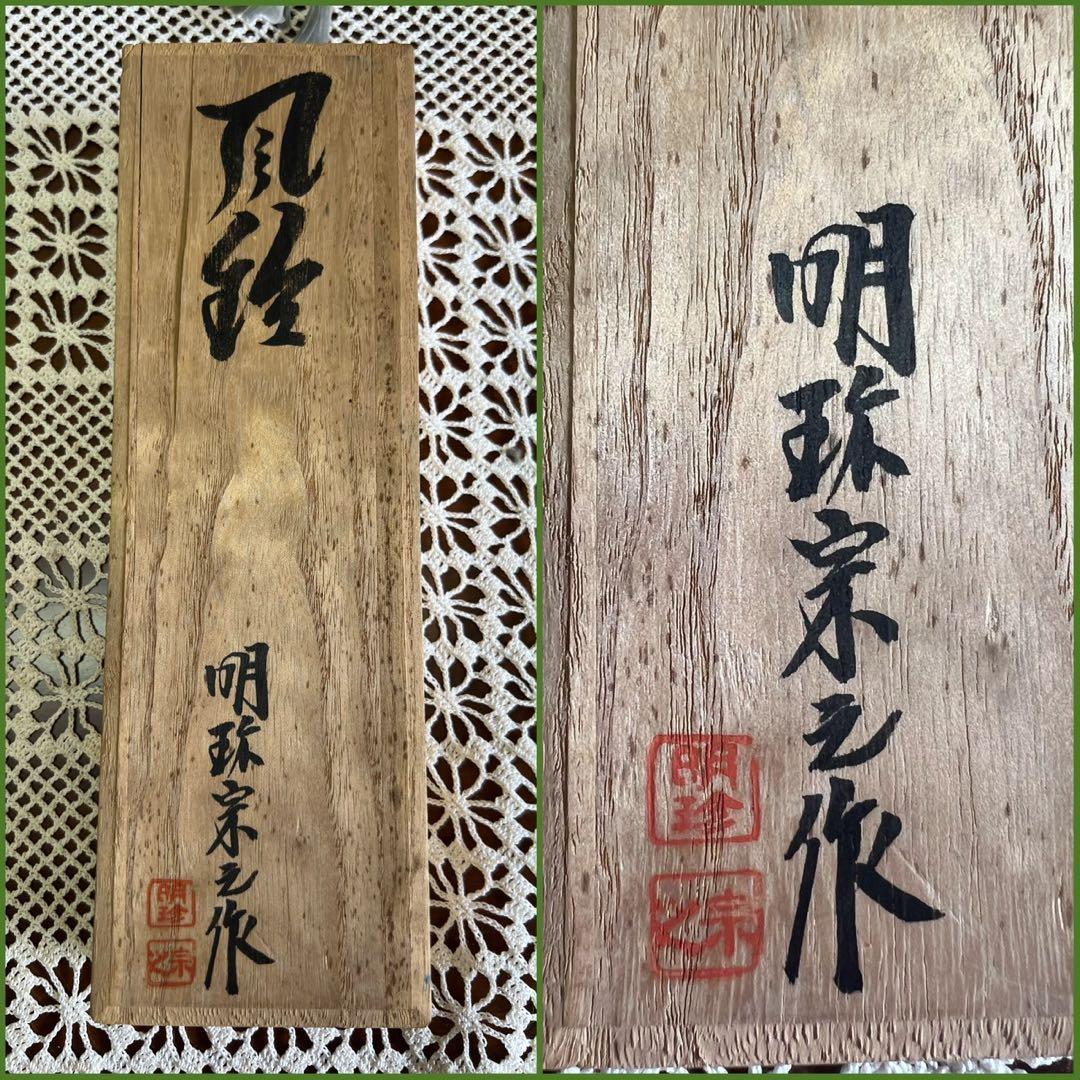 風鈴
明珍宗之作
明珍
宗之
明珍宗之作
明珍
宗之